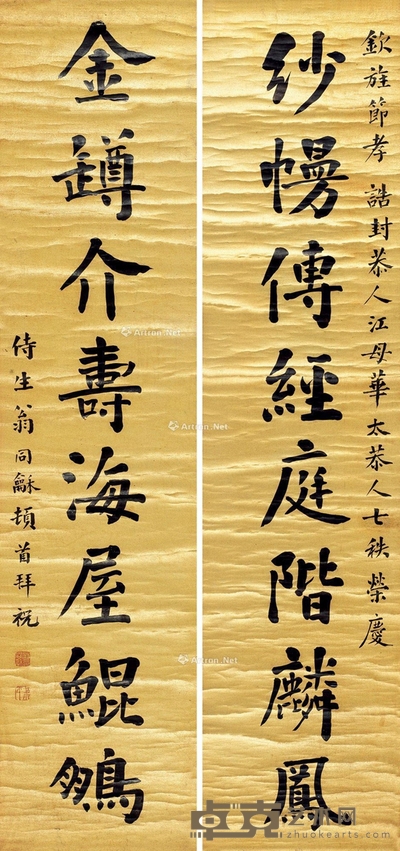 欽旌節孝誥封恭人江母華太恭人七秩榮慶
紗幔傳經庭階麟鳳
金罇介壽海屋鯤鵬
侍生翁同龢頓首拜祝
Artron.Net
Artron.Net
Artron.Net
Artron.Net
zhuokearts.com